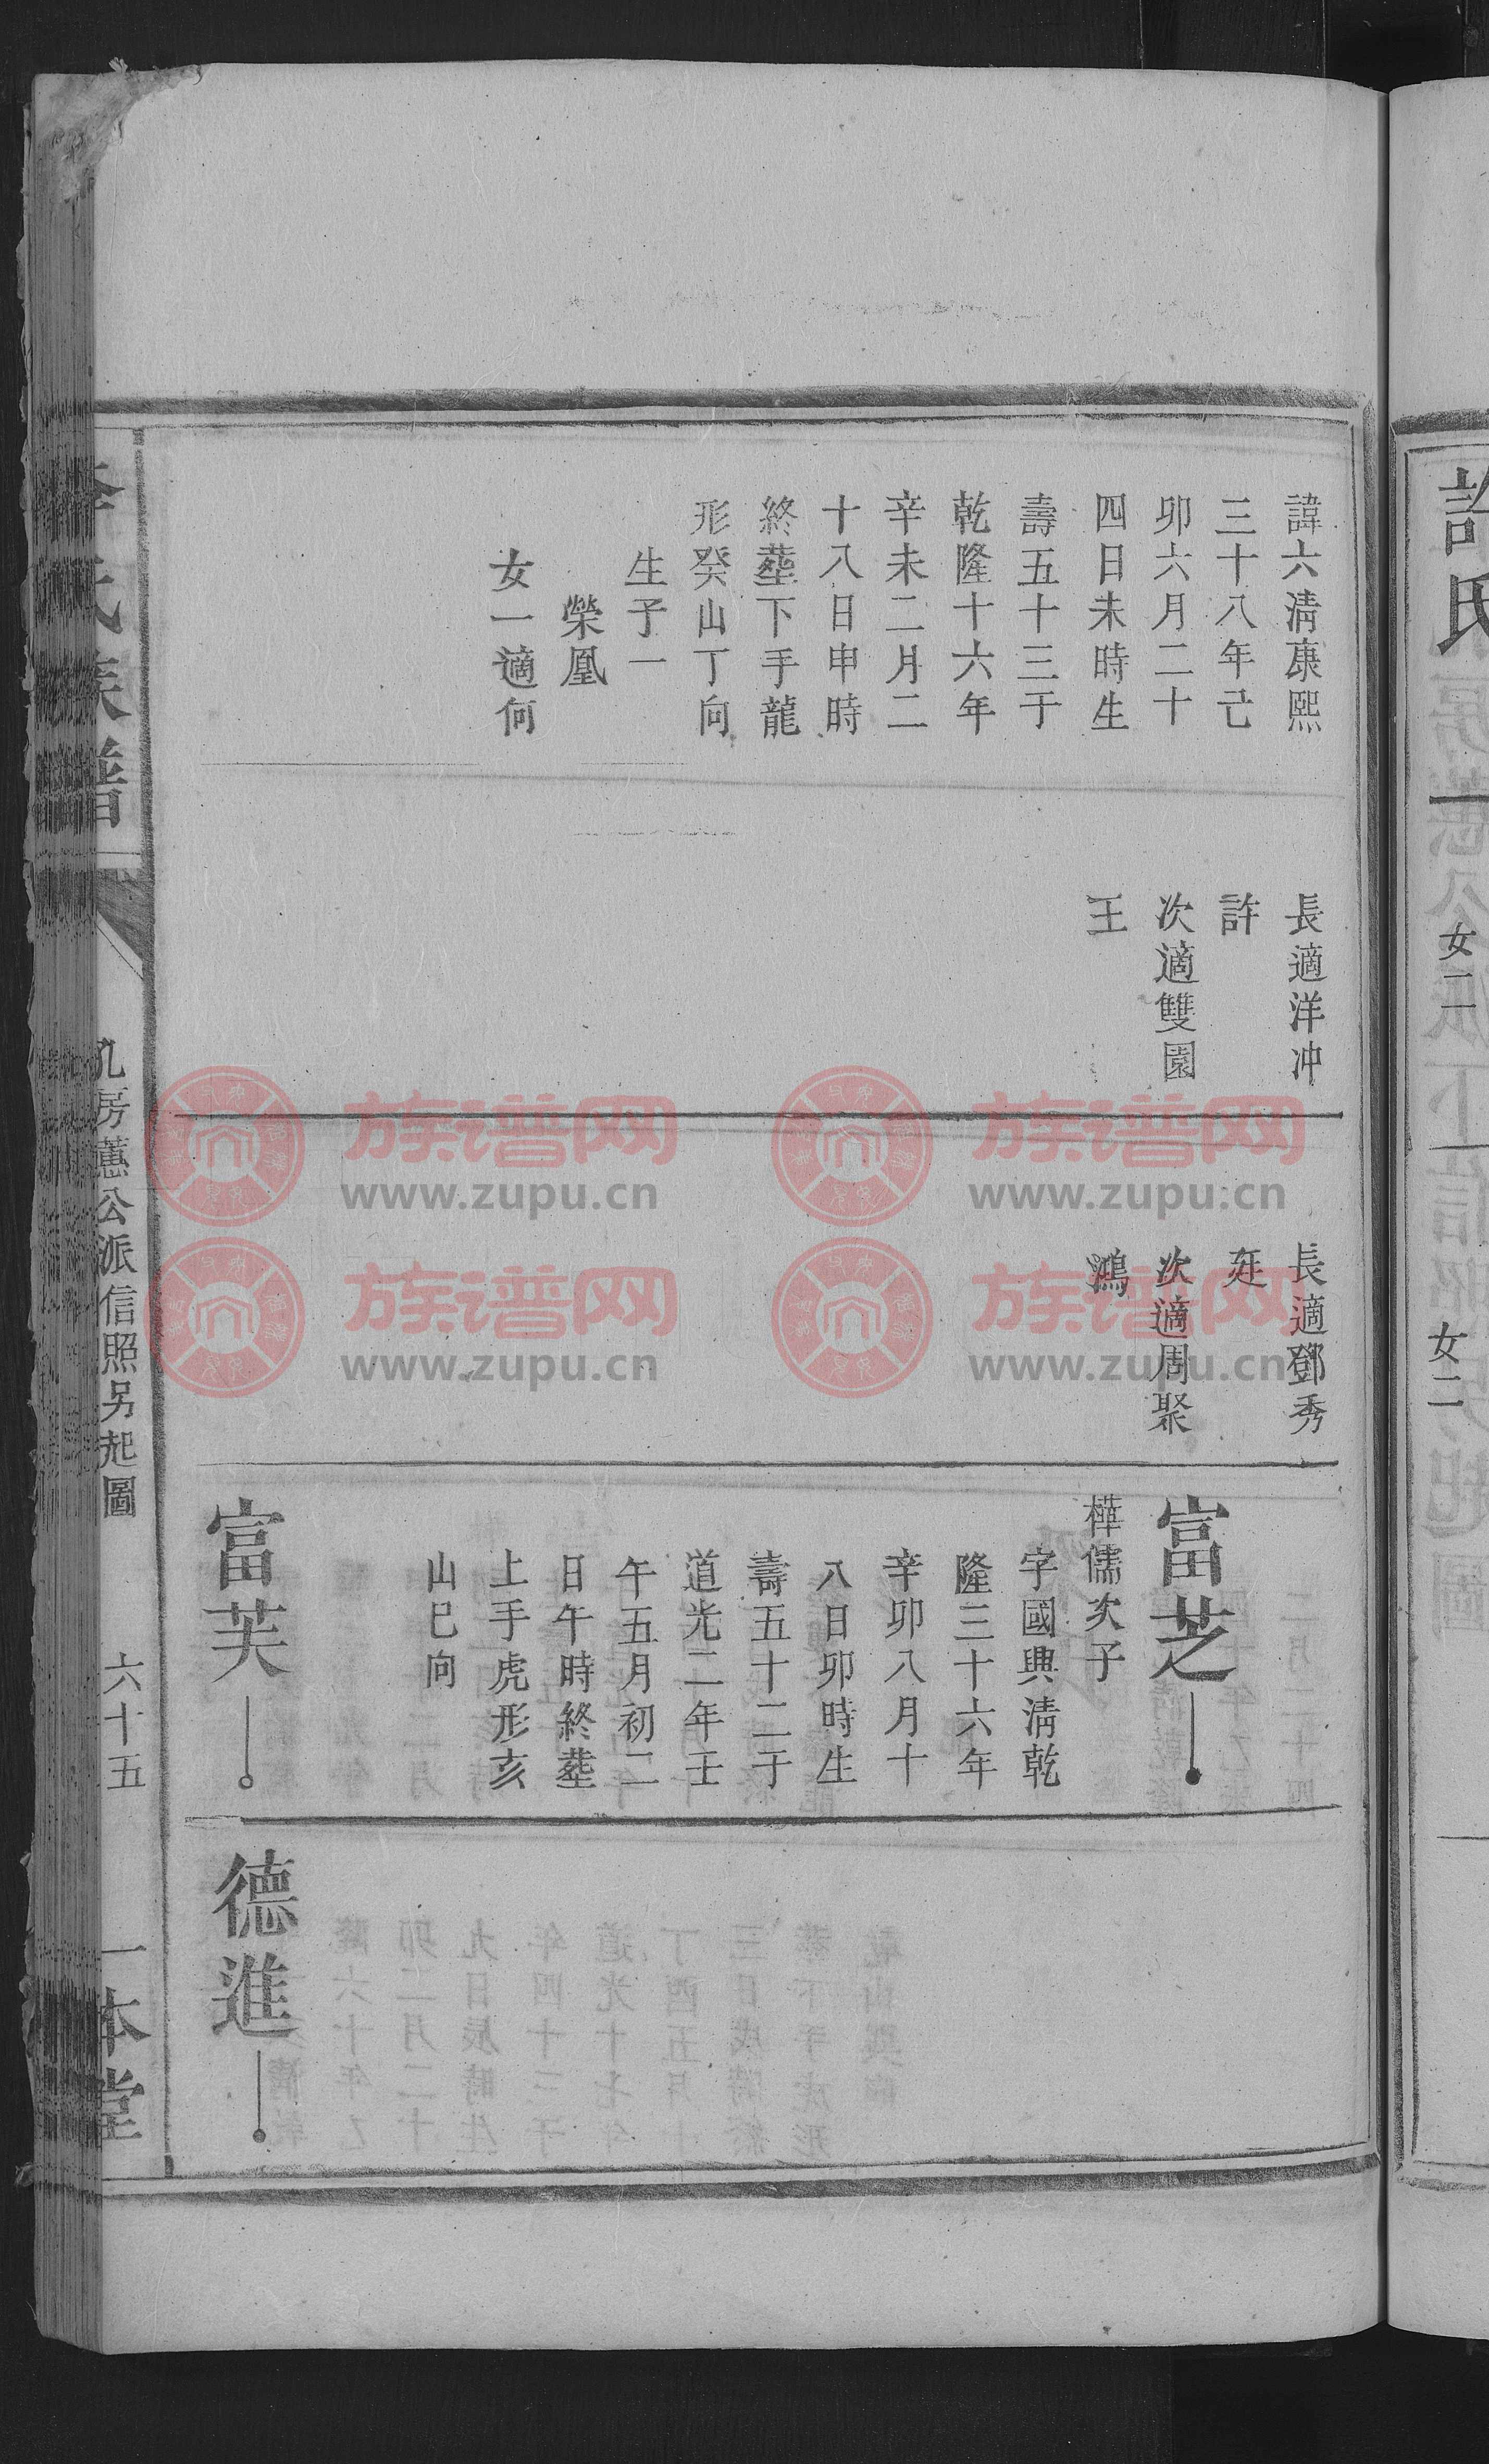 許氏
女二
女二
諱六清康熙
三十八年己
卯六月二十
四日未時生
壽五十三于
乾隆十六年
辛未二月二
十八日申時
終塟下手龍
形癸山丁向
生子一
榮凰
女一適何
長適洋冲
許
次適雙園
王
長適鄧秀
廷
次適周聚
鴻
富芝
樺儒次子
字國興清乾
隆三十六年
辛卯八月十
八日卯時生
壽五十二于
道光二年壬
午五月初二
日午時終塟
上手虎形亥
山巳向
富芙
德進
氏族譜
房蕙公派信照另起圖
六十五
一本堂
族谱网
www.zupu.cn
族谱网
www.zupu.cn
族谱网
www.zupu.cn
族谱网
www.zupu.cn